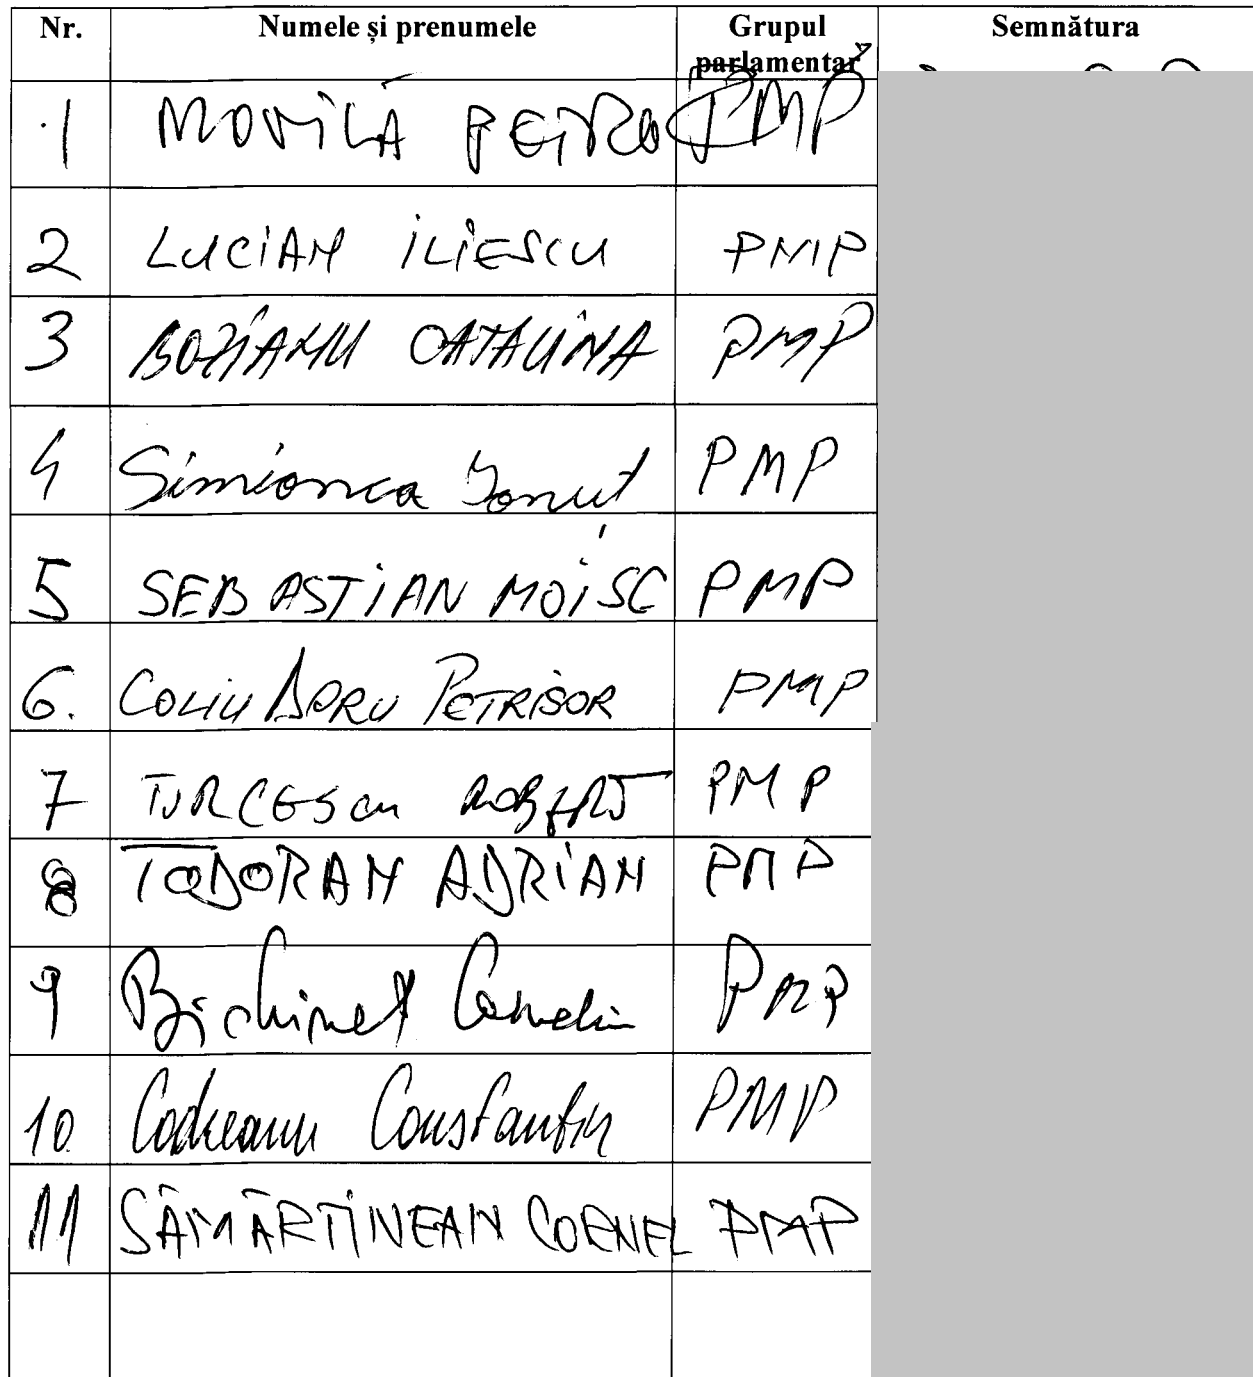 Nr. Numele și prenumele Grupul parlamentar Semnătura
1 MOVILĂ PETRU PMP
2 LUCIAN ILIESCU PMP
3 BOZIANU CATALINA PMP
4 Simionca Ionuț PMP
5 SEBASTIAN MOISC PMP
6. COLIU DORU PETRISOR PMP
7 TURCESCU ROBERT PMP
8 TODORAN ADRIAN PMP
9 Bichineț Corneliu PMP
10 Codreanu Constantin PMP
11 SĂMĂRTINEAN CORNEL PMP